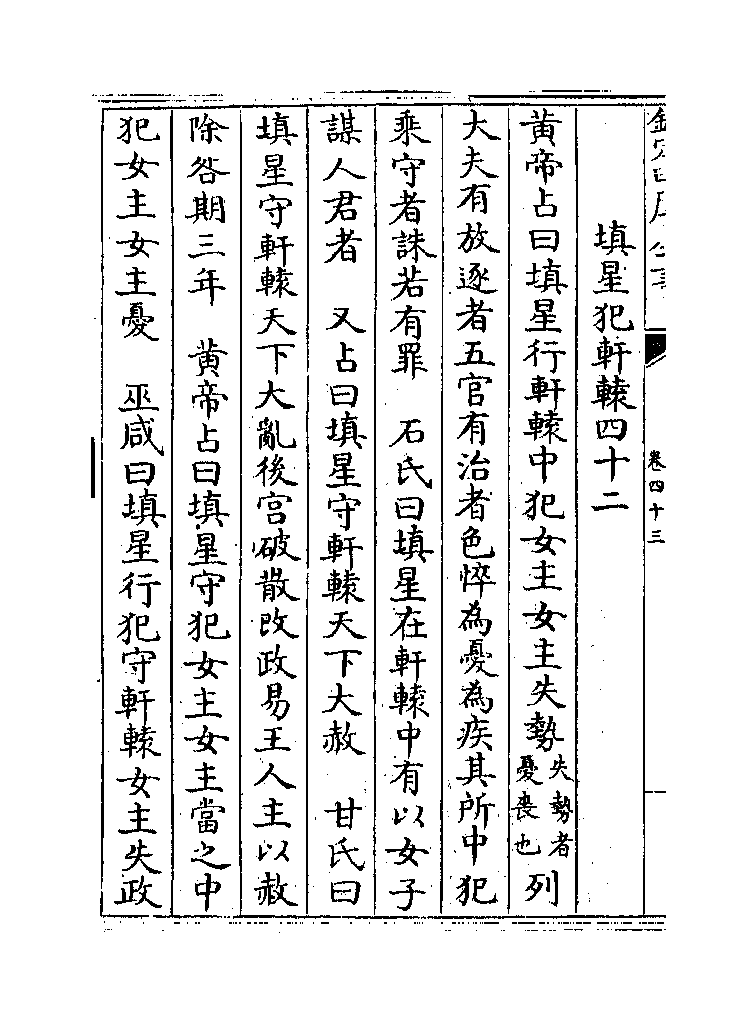 卷四十三
填星犯軒轅四十二
黃帝占曰填星行軒轅中犯女主女主失勢失勢者憂喪也列
大夫有放逐者五官有治者色悴為憂為疾其所中犯
乘守者誅若有罪　石氏曰填星在軒轅中有以女子
謀人君者　又占曰填星守軒轅天下大赦　甘氏曰
填星守軒轅天下大亂後宮破散改政易王人主以赦
除咎期三年　黃帝占曰填星守犯女主女主當之中
犯女主女主憂　巫咸曰填星行犯守軒轅女主失政